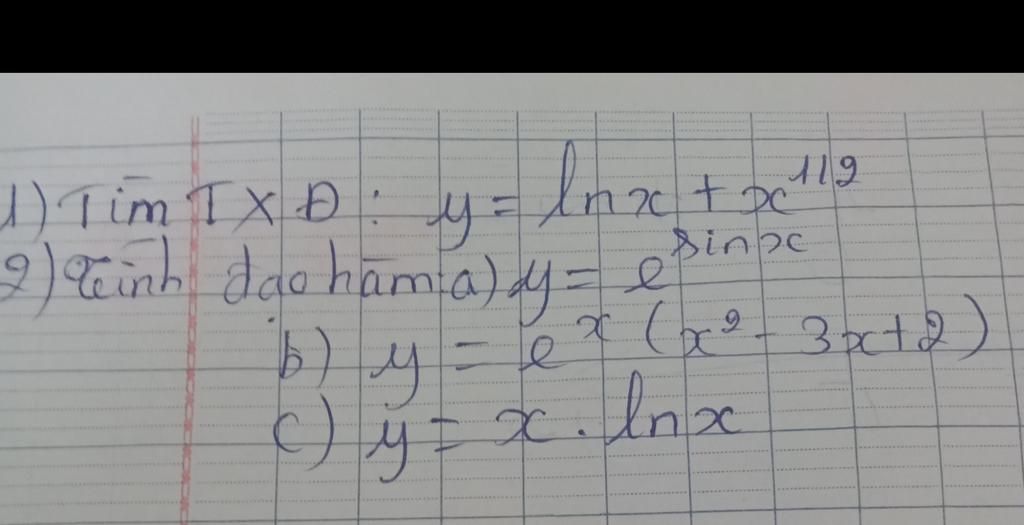 1) Tìm TXĐ: y = lnx + x^1/2
2) Tính đạo hàm: a) y = e^sinx
b) y = e^x (x² - 3x + 2)
c) y = x . lnx